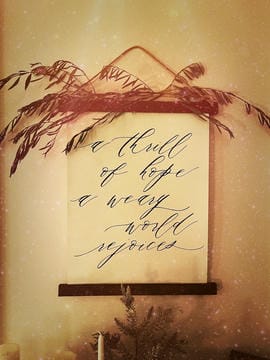 a thrill
of hope
a weary
world
rejoices